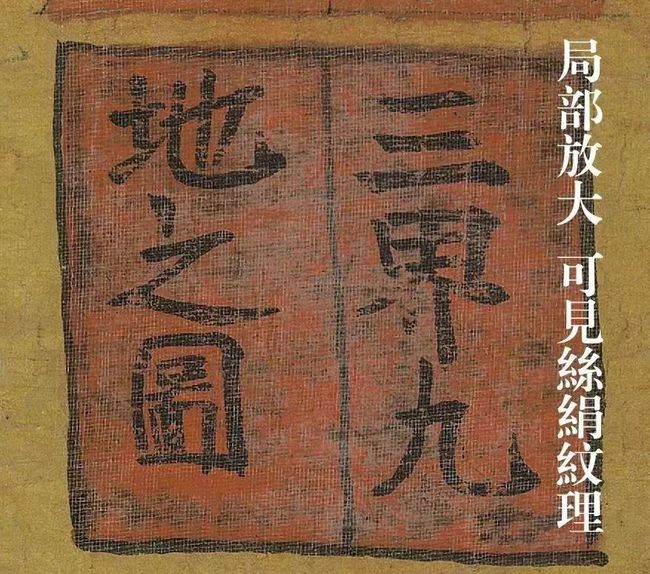 局部放大 可見絲絹紋理
三界九
地之圖